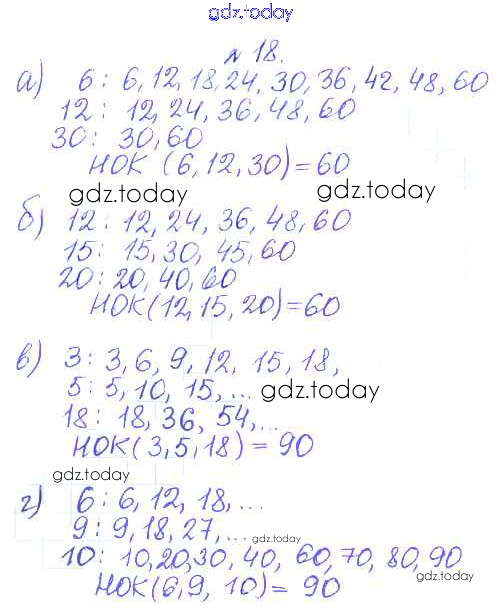 gdz.today
№ 18.
а) 6: 6, 12, 18, 24, 30, 36, 42, 48, 60
12: 12, 24, 36, 48, 60
30: 30, 60
НОК (6, 12, 30) = 60
gdz.today gdz.today
б) 12: 12, 24, 36, 48, 60
15: 15, 30, 45, 60
20: 20, 40, 60
НОК (12, 15, 20) = 60
в) 3: 3, 6, 9, 12, 15, 18,
5: 5, 10, 15, ... gdz.today
18: 18, 36, 54, ...
НОК (3, 5, 18) = 90
gdz.today
г) 6: 6, 12, 18, ...
9: 9, 18, 27, ... gdz.today
10: 10, 20, 30, 40, 60, 70, 80, 90
НОК (6, 9, 10) = 90 gdz.today